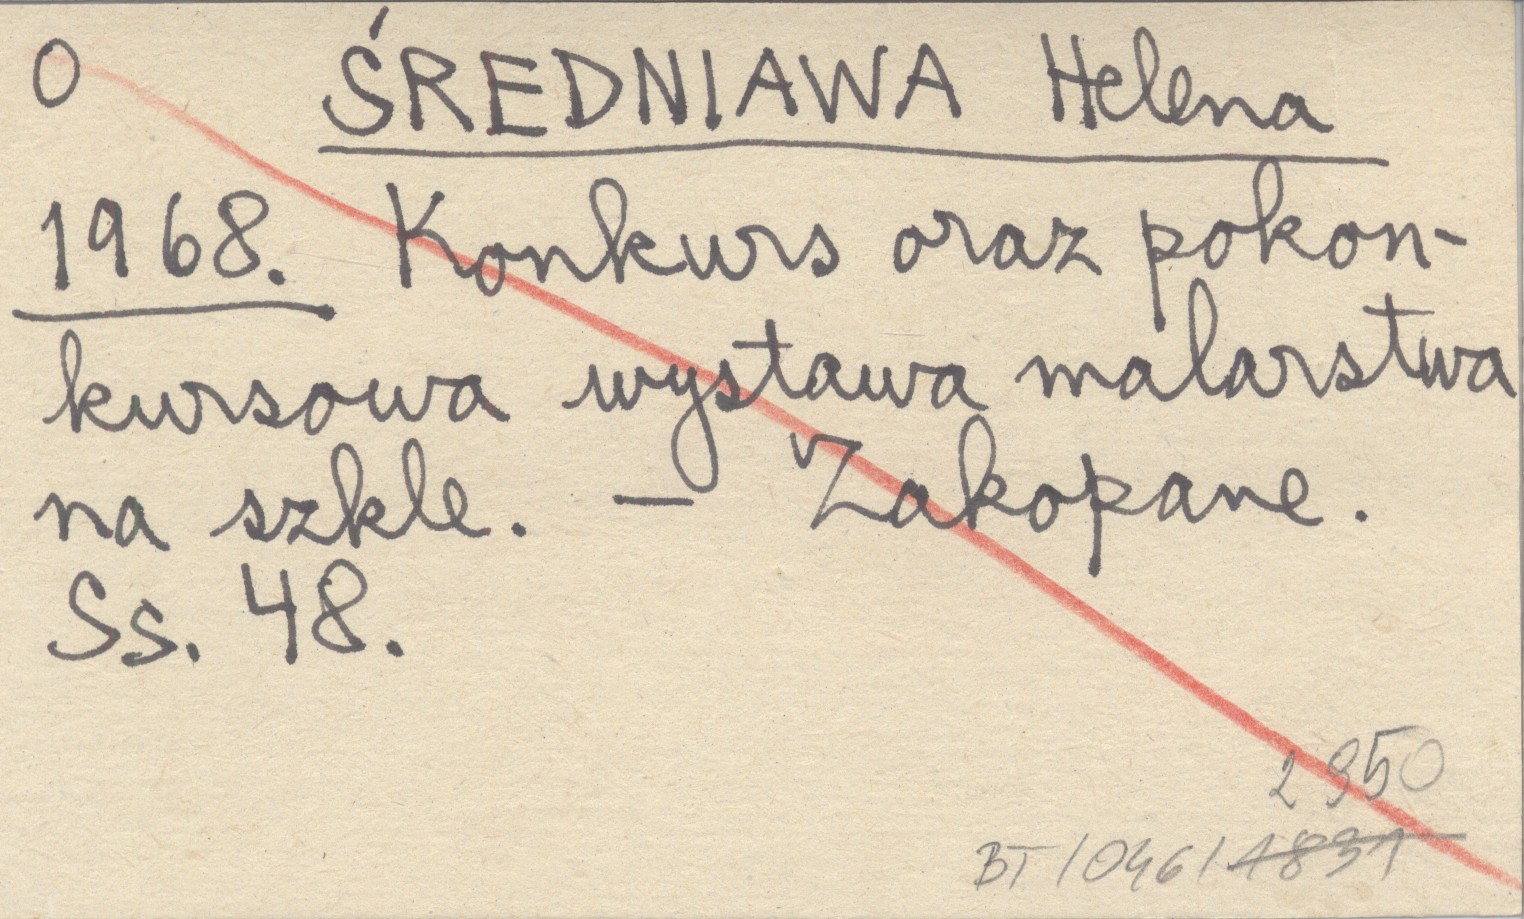 O ŚREDNIAWA Helena
1968. Konkurs oraz pokon-
kursowa wystawa malarstwa
na szkle. — Zakopane.
Ss. 48.
2950
BT/046/1831